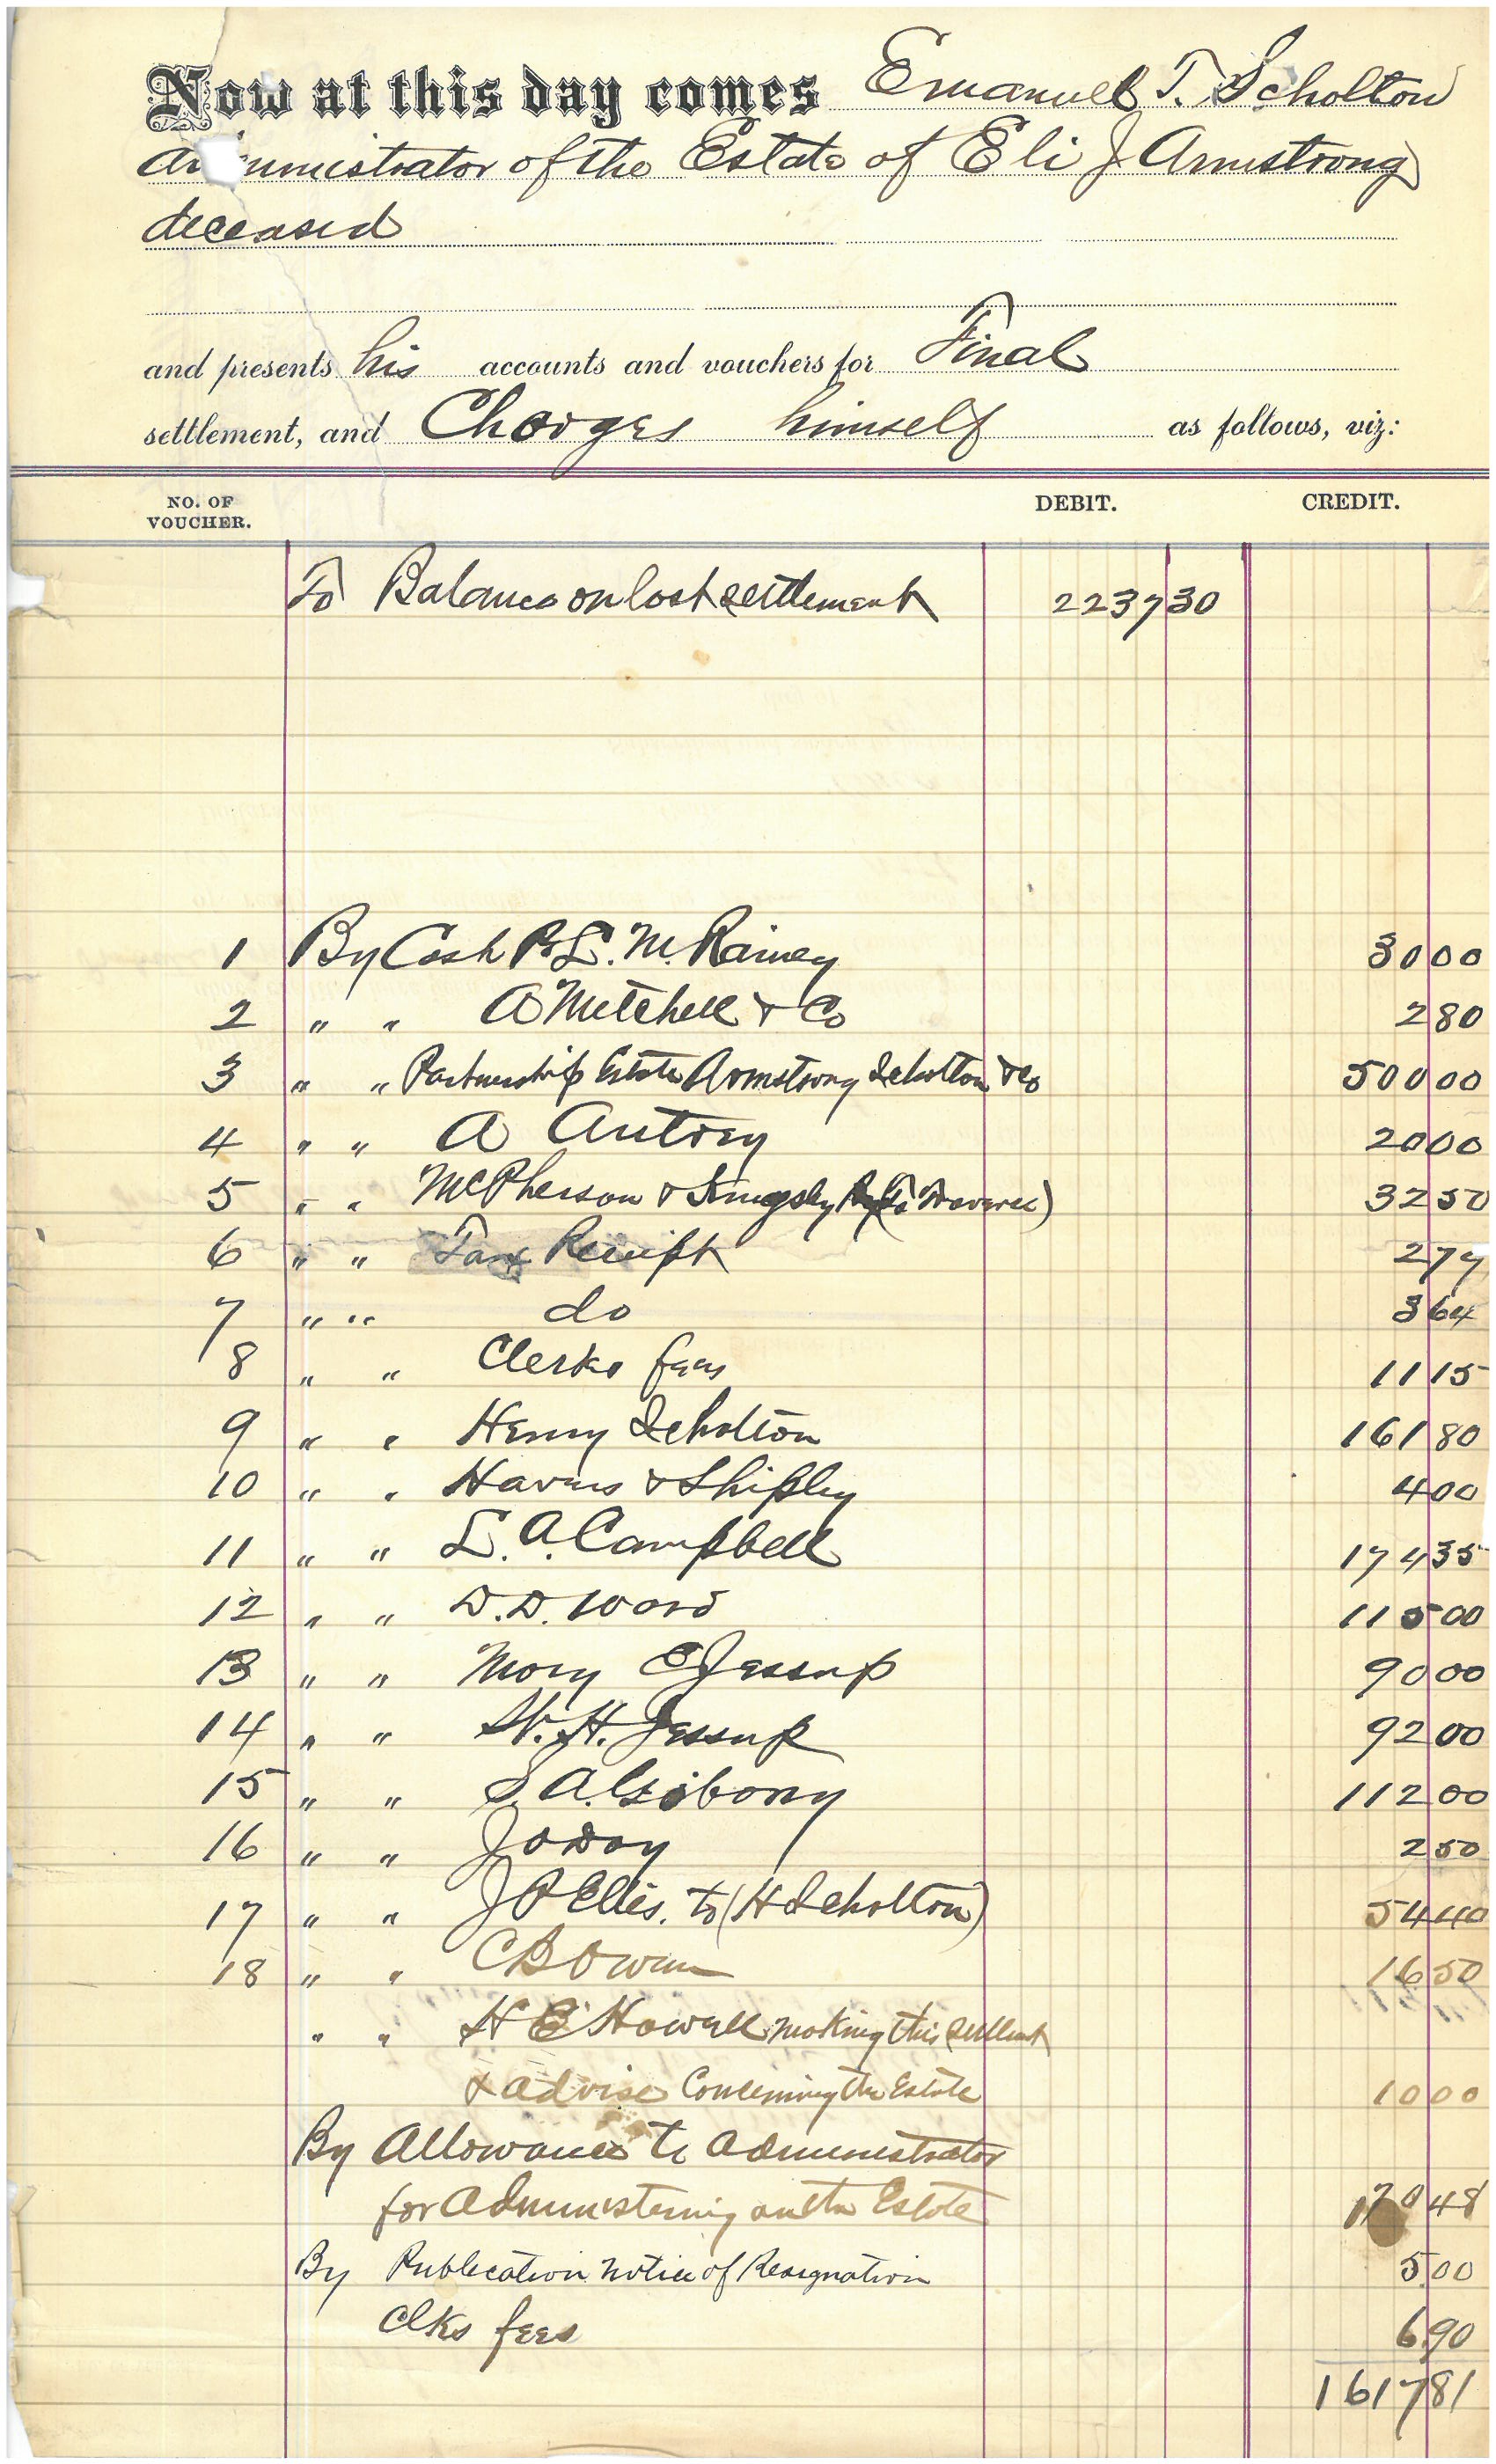 Now at this day comes Emanuel T. Scholton
Administrator of the Estate of Eli J Armstrong
deceased
and presents his accounts and vouchers for Final
settlement, and Charges himself as follows, viz:
NO. OF VOUCHER. DEBIT. CREDIT.
To Balance on last settlement 2237 30
1 By Cash P. L. M. Rainey 30 00
2 " " A Mitchell & Co 2 80
3 " " Partnership Estate Armstrong Scholton & Co 500 00
4 " " A Autory 20 00
5 " " McPherson & Kingsby 32 50
6 " " Tax Receipt 2 77
7 " " do 3 64
8 " " Clerks fees 11 15
9 " " Henry Scholton 161 80
10 " " & Shipley 4 00
11 " " L. A. Campbell 174 35
12 " " D. D. Ward 115 00
13 " " Mary E Jessup 90 00
14 " " W. H. Jessup 92 00
15 " " S. A. Gibony 112 00
16 " " J O Day 2 50
17 " " J P Ellis. to (H Scholton) 54 40
18 " " C B Owen 16 50
" " H E Howell making this settlemt
& advise Concerning the Estate 10 00
By Allowance to Administrator
for Administering on the Estate 170 48
By Publication notice of Resignation 5 00
Clks fees 6 90
1617 81